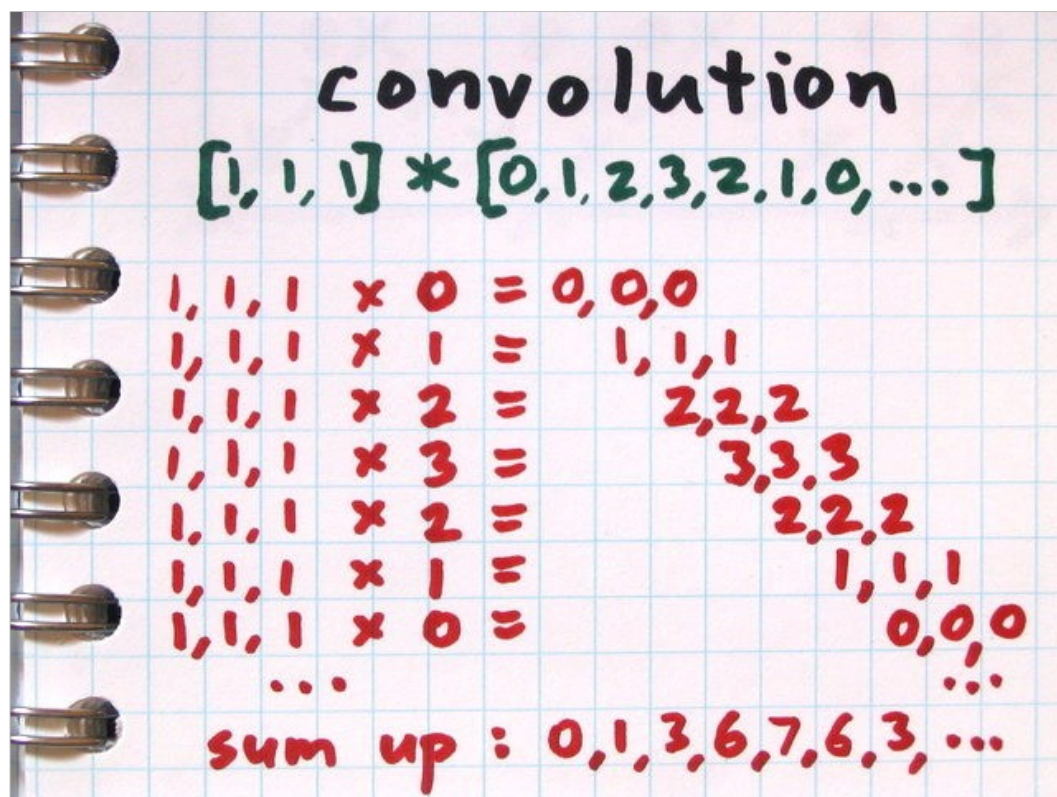 convolution
[1, 1, 1] * [0, 1, 2, 3, 2, 1, 0, ...]
1, 1, 1 × 0 = 0, 0, 0
1, 1, 1 × 1 = 1, 1, 1
1, 1, 1 × 2 = 2, 2, 2
1, 1, 1 × 3 = 3, 3, 3
1, 1, 1 × 2 = 2, 2, 2
1, 1, 1 × 1 = 1, 1, 1
1, 1, 1 × 0 = 0, 0, 0
... ...
sum up : 0, 1, 3, 6, 7, 6, 3, ...